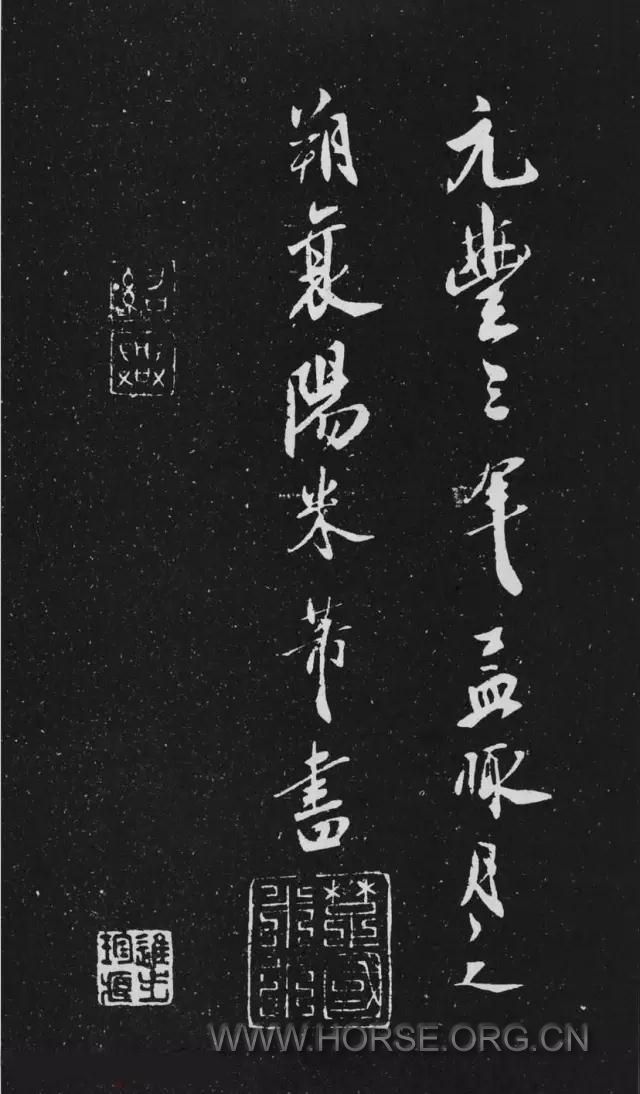 元豐三年孟陬月之
朔襄陽米芾書
WWW.HORSE.ORG.CN